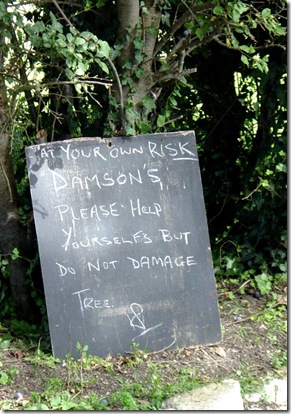 AT YOUR OWN RISK
DAMSON'S,
PLEASE HELP
YOURSELF'S BUT
DO NOT DAMAGE
TREE.